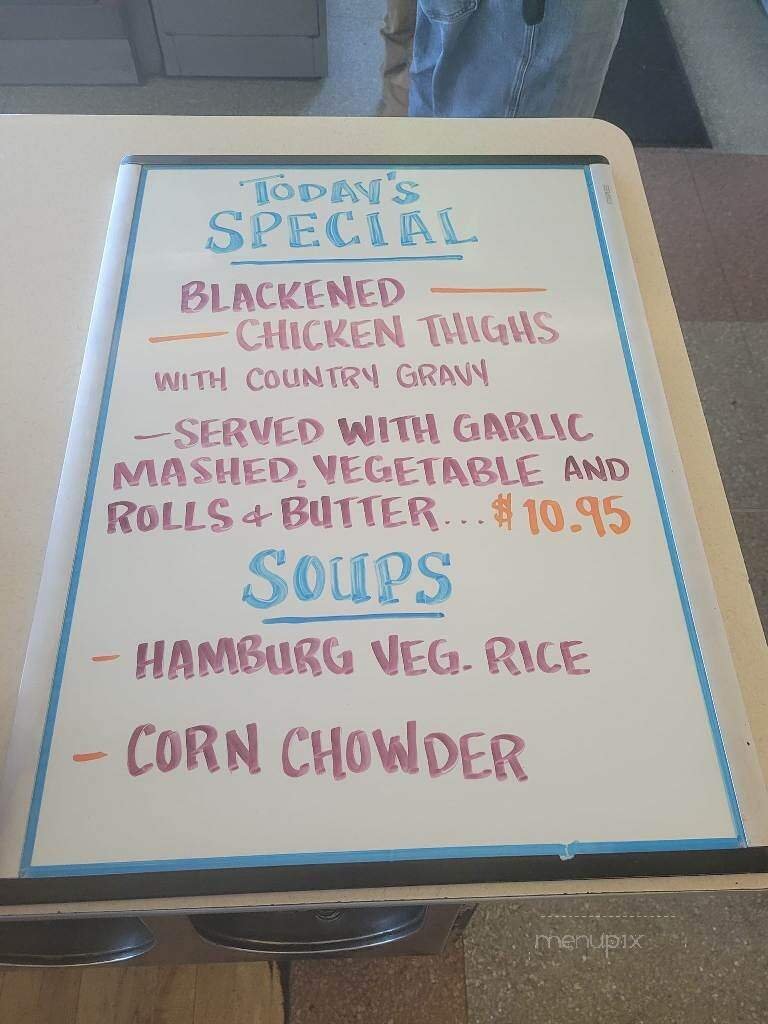 TODAY'S
SPECIAL
BLACKENED —
— CHICKEN THIGHS
WITH COUNTRY GRAVY
—SERVED WITH GARLIC
MASHED, VEGETABLE AND
ROLLS & BUTTER... $10.95
SOUPS
- HAMBURG VEG. RICE
- CORN CHOWDER
menupix